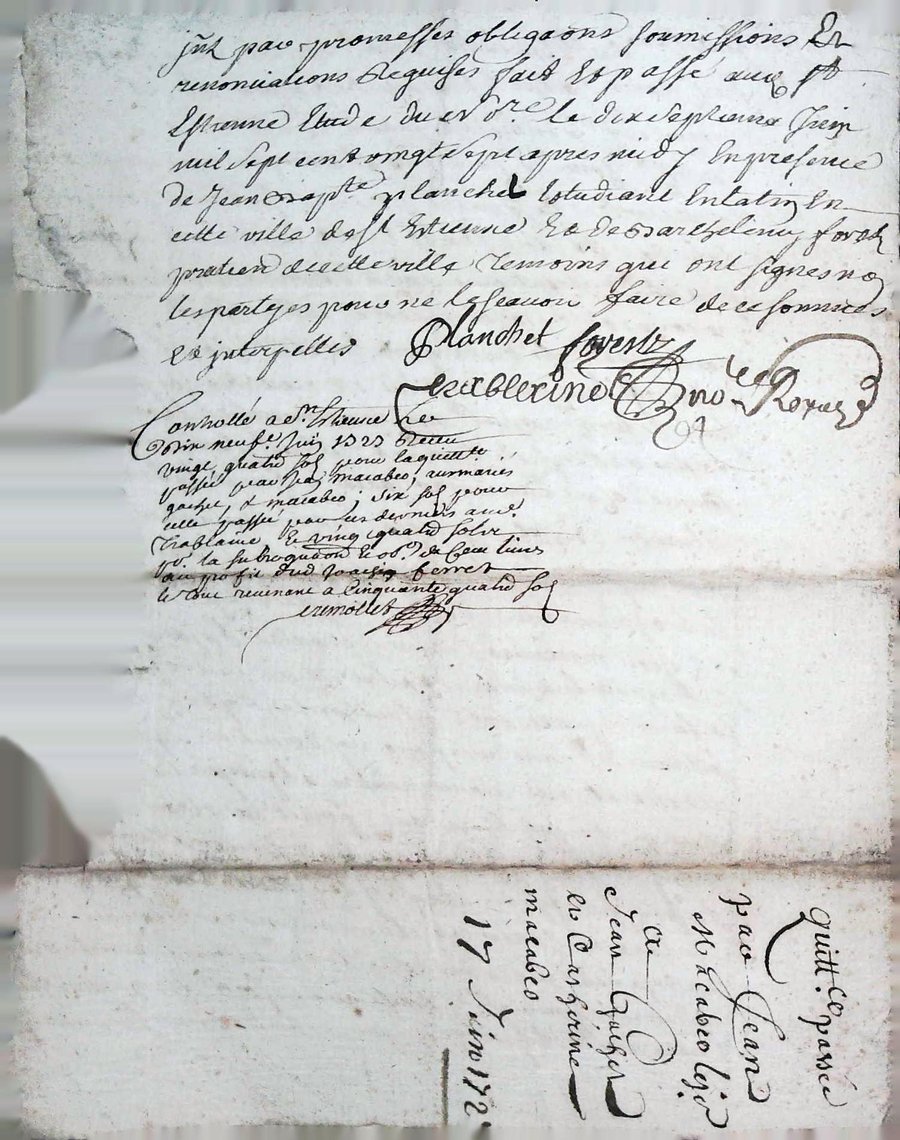 jnt par promesses obliga͠ons soumissions Et
renonciations Requises fait Et passé aud St
Estienne Etude du no͠re le dix septieme Juin
mil sept cent vingt sept apres midy En presence
de Jean Bapte planchet Estudiant En latin En
cette ville de St Estienne Et de Barthelemy forest
praticien de cette ville Temoins qui ont signes no
les partyes pour ne le scavoir faire de ce sommees
Et interpelles
Planchet forest
note Royal
Controllé a St Estienne Le
Dix neufe Juin 1727 Receu
vingt quatre sols pour la quitte
passée par Jean macabeo, aux mariés
gachet, & macabeo; six sols pour
celle passée par ces derniers aud.
Et vingt quatre sols
pr. la subrogation
au profit dud ferret
le tout revenant a Cinquante quatre sols
quittce passée
par Jean
Macabeo
a
Jean Gachet
et Catherine
macabeo
17 Juin 172